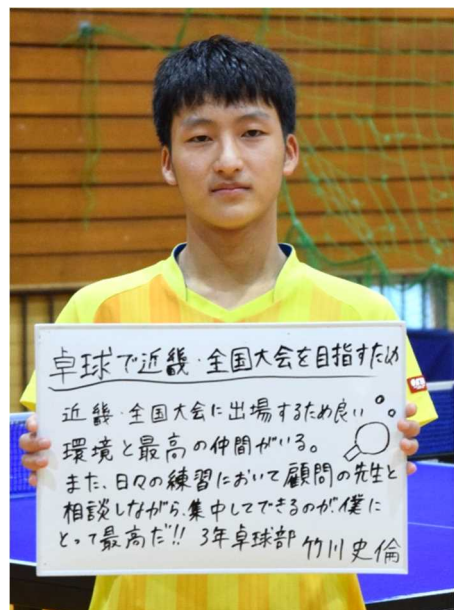 卓球で近畿・全国大会を目指すため
近畿・全国大会に出場するため良い
環境と最高の仲間がいる。
また、日々の練習において顧問の先生と
相談しながら、集中してできるのが、僕に
とって最高だ!! 3年卓球部 竹川史倫